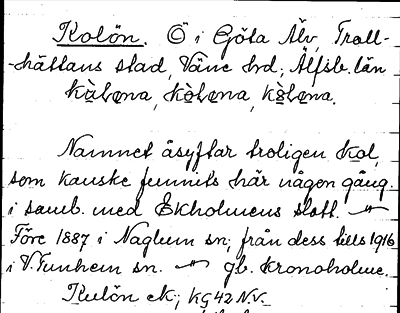 Kolön. Ö i Göta Älv, Troll-
-hättans stad, Väne hrd, Älfsb. län
kòlọna, kòlọna, kòlọna.
Namnet åsyftar troligen kol,
som kanske funnits här någon gång.
i samb. med Ekholmens slott. —"—
Före 1887 i Naglum sn; från dess tills 1916
i V. Tunhem sn. —"— gb. Kronoholme.
Kulön ek; KG 42 N.V.